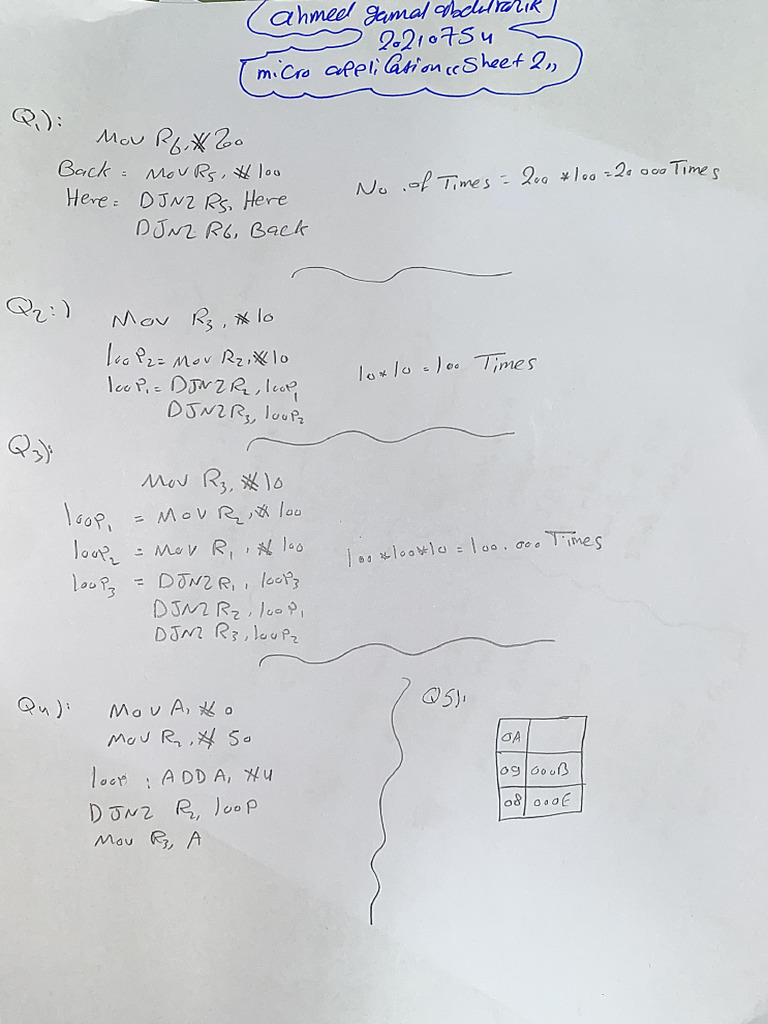 ahmed gamal abdulrazik
20210754
micro application "Sheet 2"
Q1):
Mov R6, #200
Back: Mov R5, #100
Here: DJNZ R5, Here
DJNZ R6, Back
No. of Times = 200 * 100 = 20 000 Times
Q2:)
Mov R3, #10
loop2 = Mov R2, #10
loop1 = DJNZ R2, loop1
DJNZ R3, loop2
10 * 10 = 100 Times
Q3):
Mov R3, #10
loop1 = Mov R2, #100
loop2 = Mov R1, #100
loop3 = DJNZ R1, loop3
DJNZ R2, loop1
DJNZ R3, loop2
100*100*10 = 100.000 Times
Q4):
Mov A, #0
Mov R2, #50
loop: ADD A, #4
DJNZ R2, loop
Mov R3, A
Q5):
0A
09 000B
08 000E